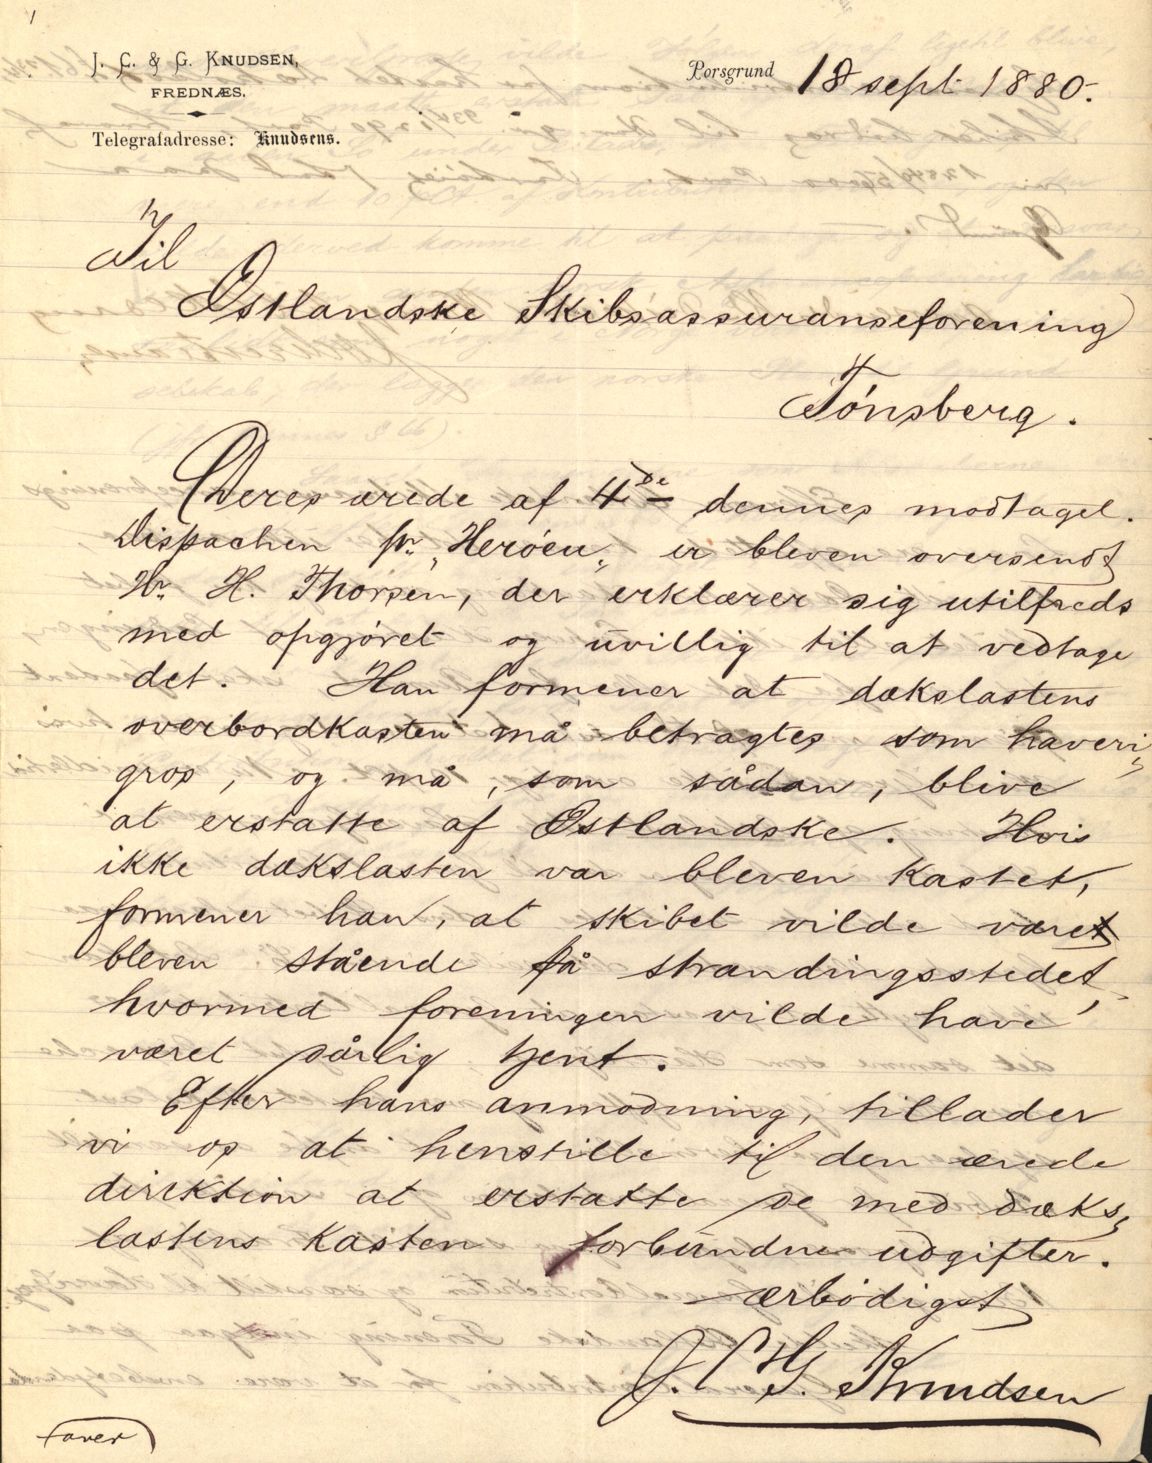 1
J. C. & G. KNUDSEN,
FREDNÆS.
Telegrafadresse: Knudsens.
Porsgrund 18 sept 1880.
Til
Østlandske Skibsassuranseforening
Tønsberg.
Deres ærede af 4de dennes modtaget.
Dispachen pr „Herøen„ er bleven oversendt
Hr. H. Thorsen, der erklærer sig utilfreds
med opgjøret og uvillig til at vedtage
det. Han formener at dækslastens
overbordkasten må betragtes som haveri
gros, og må, som sådan, blive
at erstatte af Østlandske. Hvis
ikke dækslasten var bleven kastet,
formener han, at skibet vilde været
bleven stående på strandingsstedet,
hvormed foreningen vilde have
været sårlig tjent.
Efter hans anmodning, tillader
vi os at henstille til den ærede
direktion at erstatte de med dæks
lastens kasten forbundne udgifter.
ærbødigst
J. C. & G. Knudsen